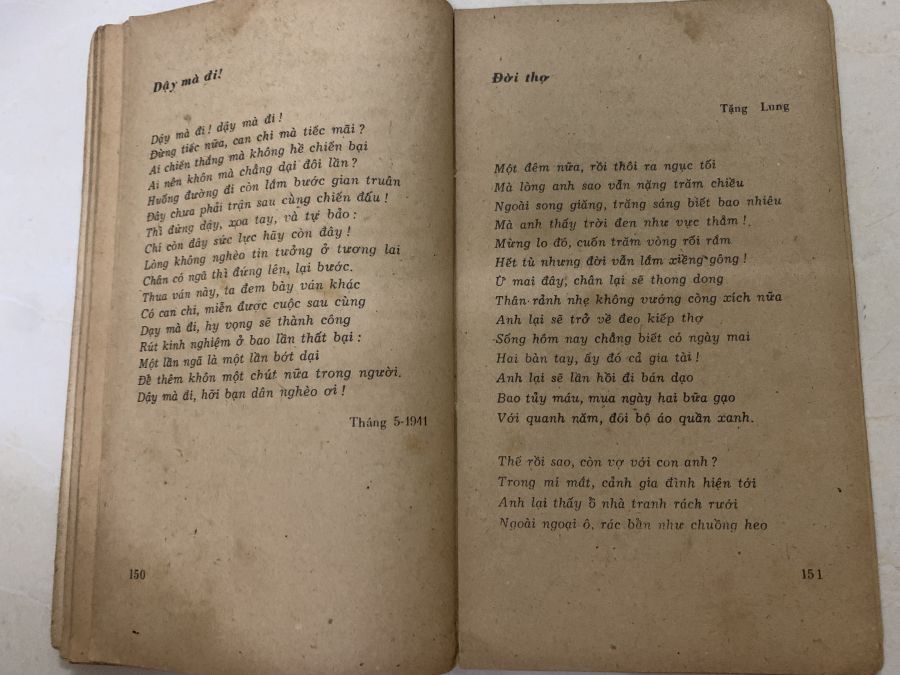 Dậy mà đi!
Dậy mà đi! dậy mà đi!
Đừng tiếc nữa, can chi mà tiếc mãi?
Ai chiến thắng mà không hề chiến bại
Ai nên khôn mà chẳng dại đôi lần?
Huống đường đi còn lắm bước gian truân
Đây chưa phải trận sau cùng chiến đấu!
Thì đứng dậy, xoa tay, và tự bảo:
Chi còn đây sức lực hãy còn đây!
Lòng không nghèo tin tưởng ở tương lai
Chân có ngã thì đứng lên, lại bước.
Thua ván này, ta đem bày ván khác
Có can chi, miễn được cuộc sau cùng
Dạy mà đi, hy vọng sẽ thành công
Rút kinh nghiệm ở bao lần thất bại:
Một lần ngã là một lần bớt dại
Để thêm khôn một chút nữa trong người.
Dậy mà đi, hỡi bạn dân nghèo ơi!
Tháng 5-1941
150
Đời thợ
Tặng Lung
Một đêm nữa, rồi thôi ra ngục tối
Mà lòng anh sao vẫn nặng trăm chiều
Ngoài song giăng, trăng sáng biết bao nhiêu
Mà anh thấy trời đen như vực thẳm!
Mừng lo đó, cuốn trăm vòng rối rắm
Hết tù nhưng đời vẫn lắm xiềng gông!
Ừ mai đây, chân lại sẽ thong dong
Thân rảnh nhẹ không vướng còng xích nữa
Anh lại sẽ trở về đeo kiếp thợ
Sống hôm nay chẳng biết có ngày mai
Hai bàn tay, ấy đó cả gia tài!
Anh lại sẽ lần hồi đi bán dạo
Bao tủy máu, mua ngày hai bữa gạo
Với quanh năm, đôi bộ áo quần xanh.
Thế rồi sao, còn vợ với con anh?
Trong mí mắt, cảnh gia đình hiện tới
Anh lại thấy ồ nhà tranh rách rưới
Ngoài ngoại ô, rác bẩn như chuồng heo
151